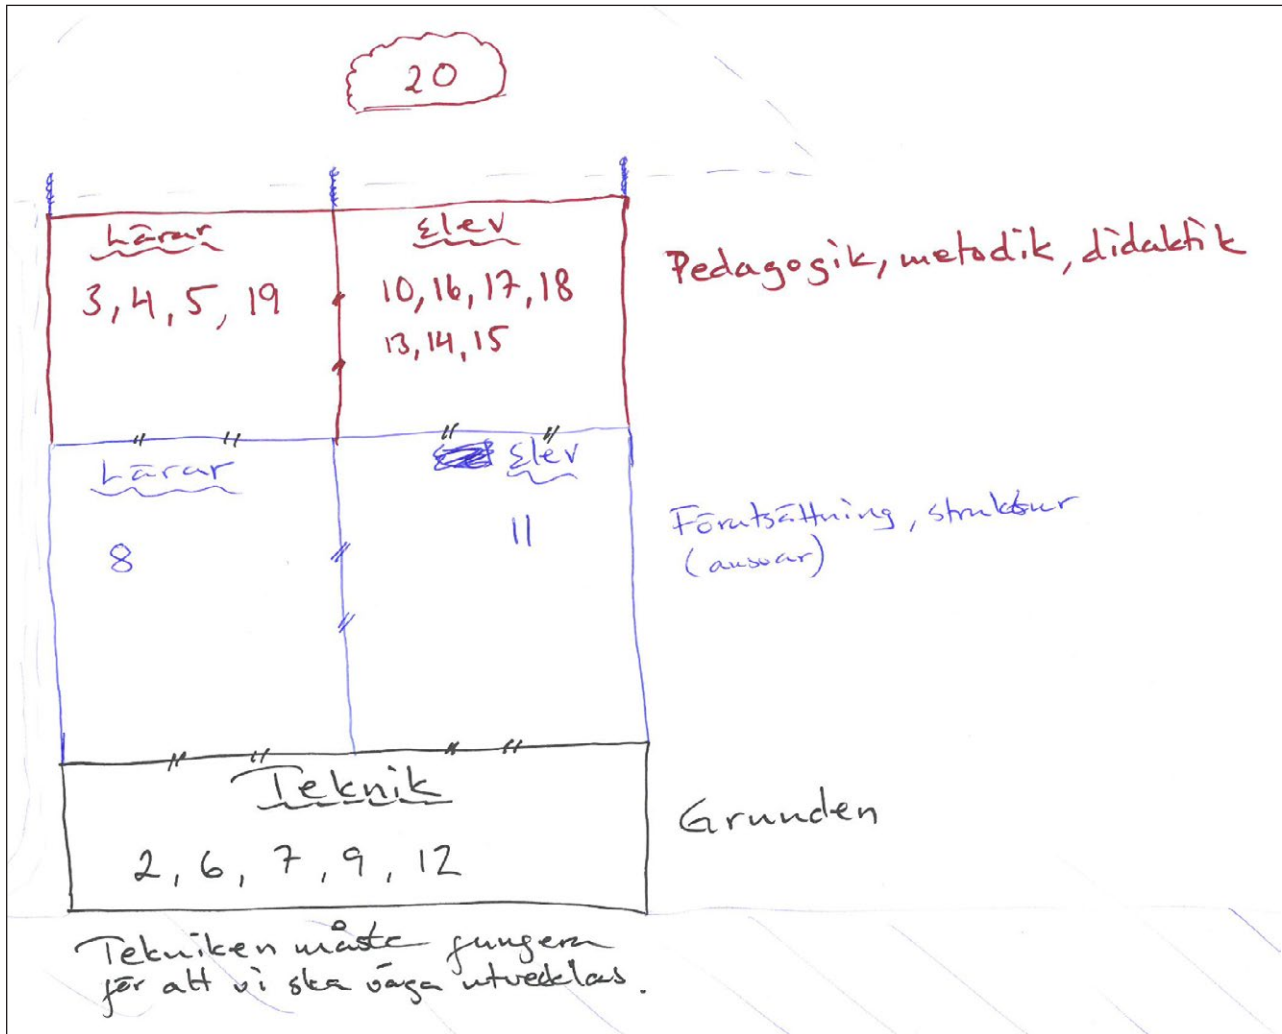 20
Lärar
3, 4, 5, 19
Elev
10, 16, 17, 18
13, 14, 15
Pedagogik, metodik, didaktik
Lärar
8
Elev
11
Förutsättning, struktur
(ansvar)
Teknik
2, 6, 7, 9, 12
Grunden
Tekniken måste fungera
för att vi ska våga utvecklas.